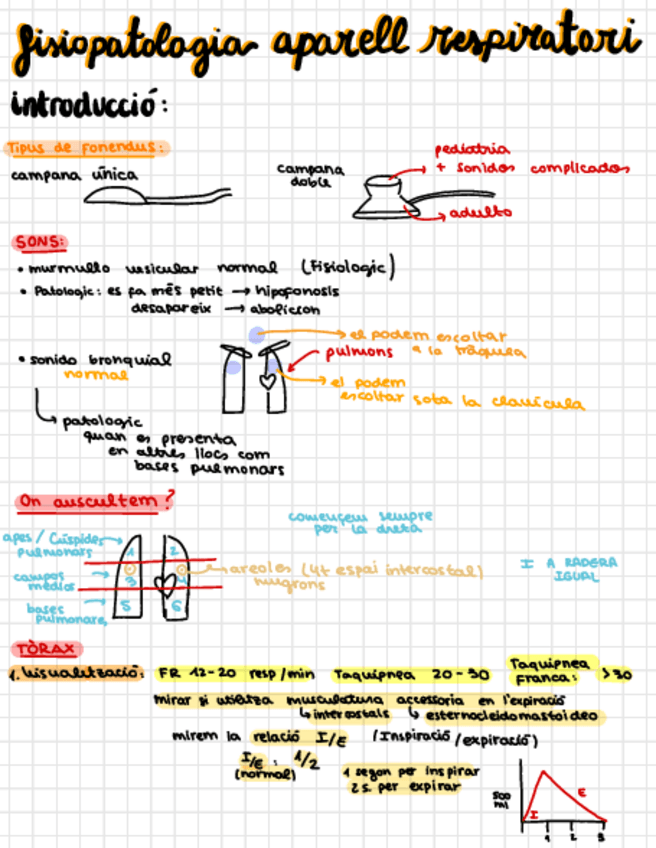 fisiopatologia aparell respiratori
introducció:
Tipus de fonendus:
campana única
campana doble
pediatria
+ sonidos complicados
adulto
SONS:
• murmullo vesicular normal (Fisiologic)
• Patologic: es fa més petit → hipofonosis
desapareix → abolicion
• sonido bronquial
normal
el podem escoltar
a la tràquea
pulmons
el podem
escoltar sota la clavícula
patologic
quan es presenta
en altres llocs com
bases pulmonars
On auscultem?
començem sempre
per la dreta
apes / Cúspides
pulmonars
1 2
3 4
5 6
areoles (4t espai intercostal)
mugrons
I A RADERA
IGUAL
campos
médios
bases
pulmonares
TÒRAX
1. Visualització: FR 12-20 resp/min Taquipnea 20-30 Taquipnea Franca: >30
mirar si utilitza musculatura accessoria en l'expiració
↳ intercostals ↳ esternocleidomastoideo
mirem la relació I/E (Inspiració/expiració)
I/E: 1/2
(normal)
1 segon per inspirar
2 s. per expirar
500
ml
I
E
1 2 3